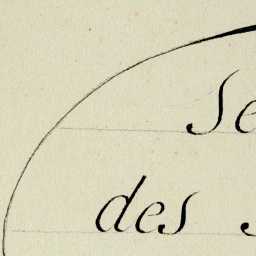 Se
des S